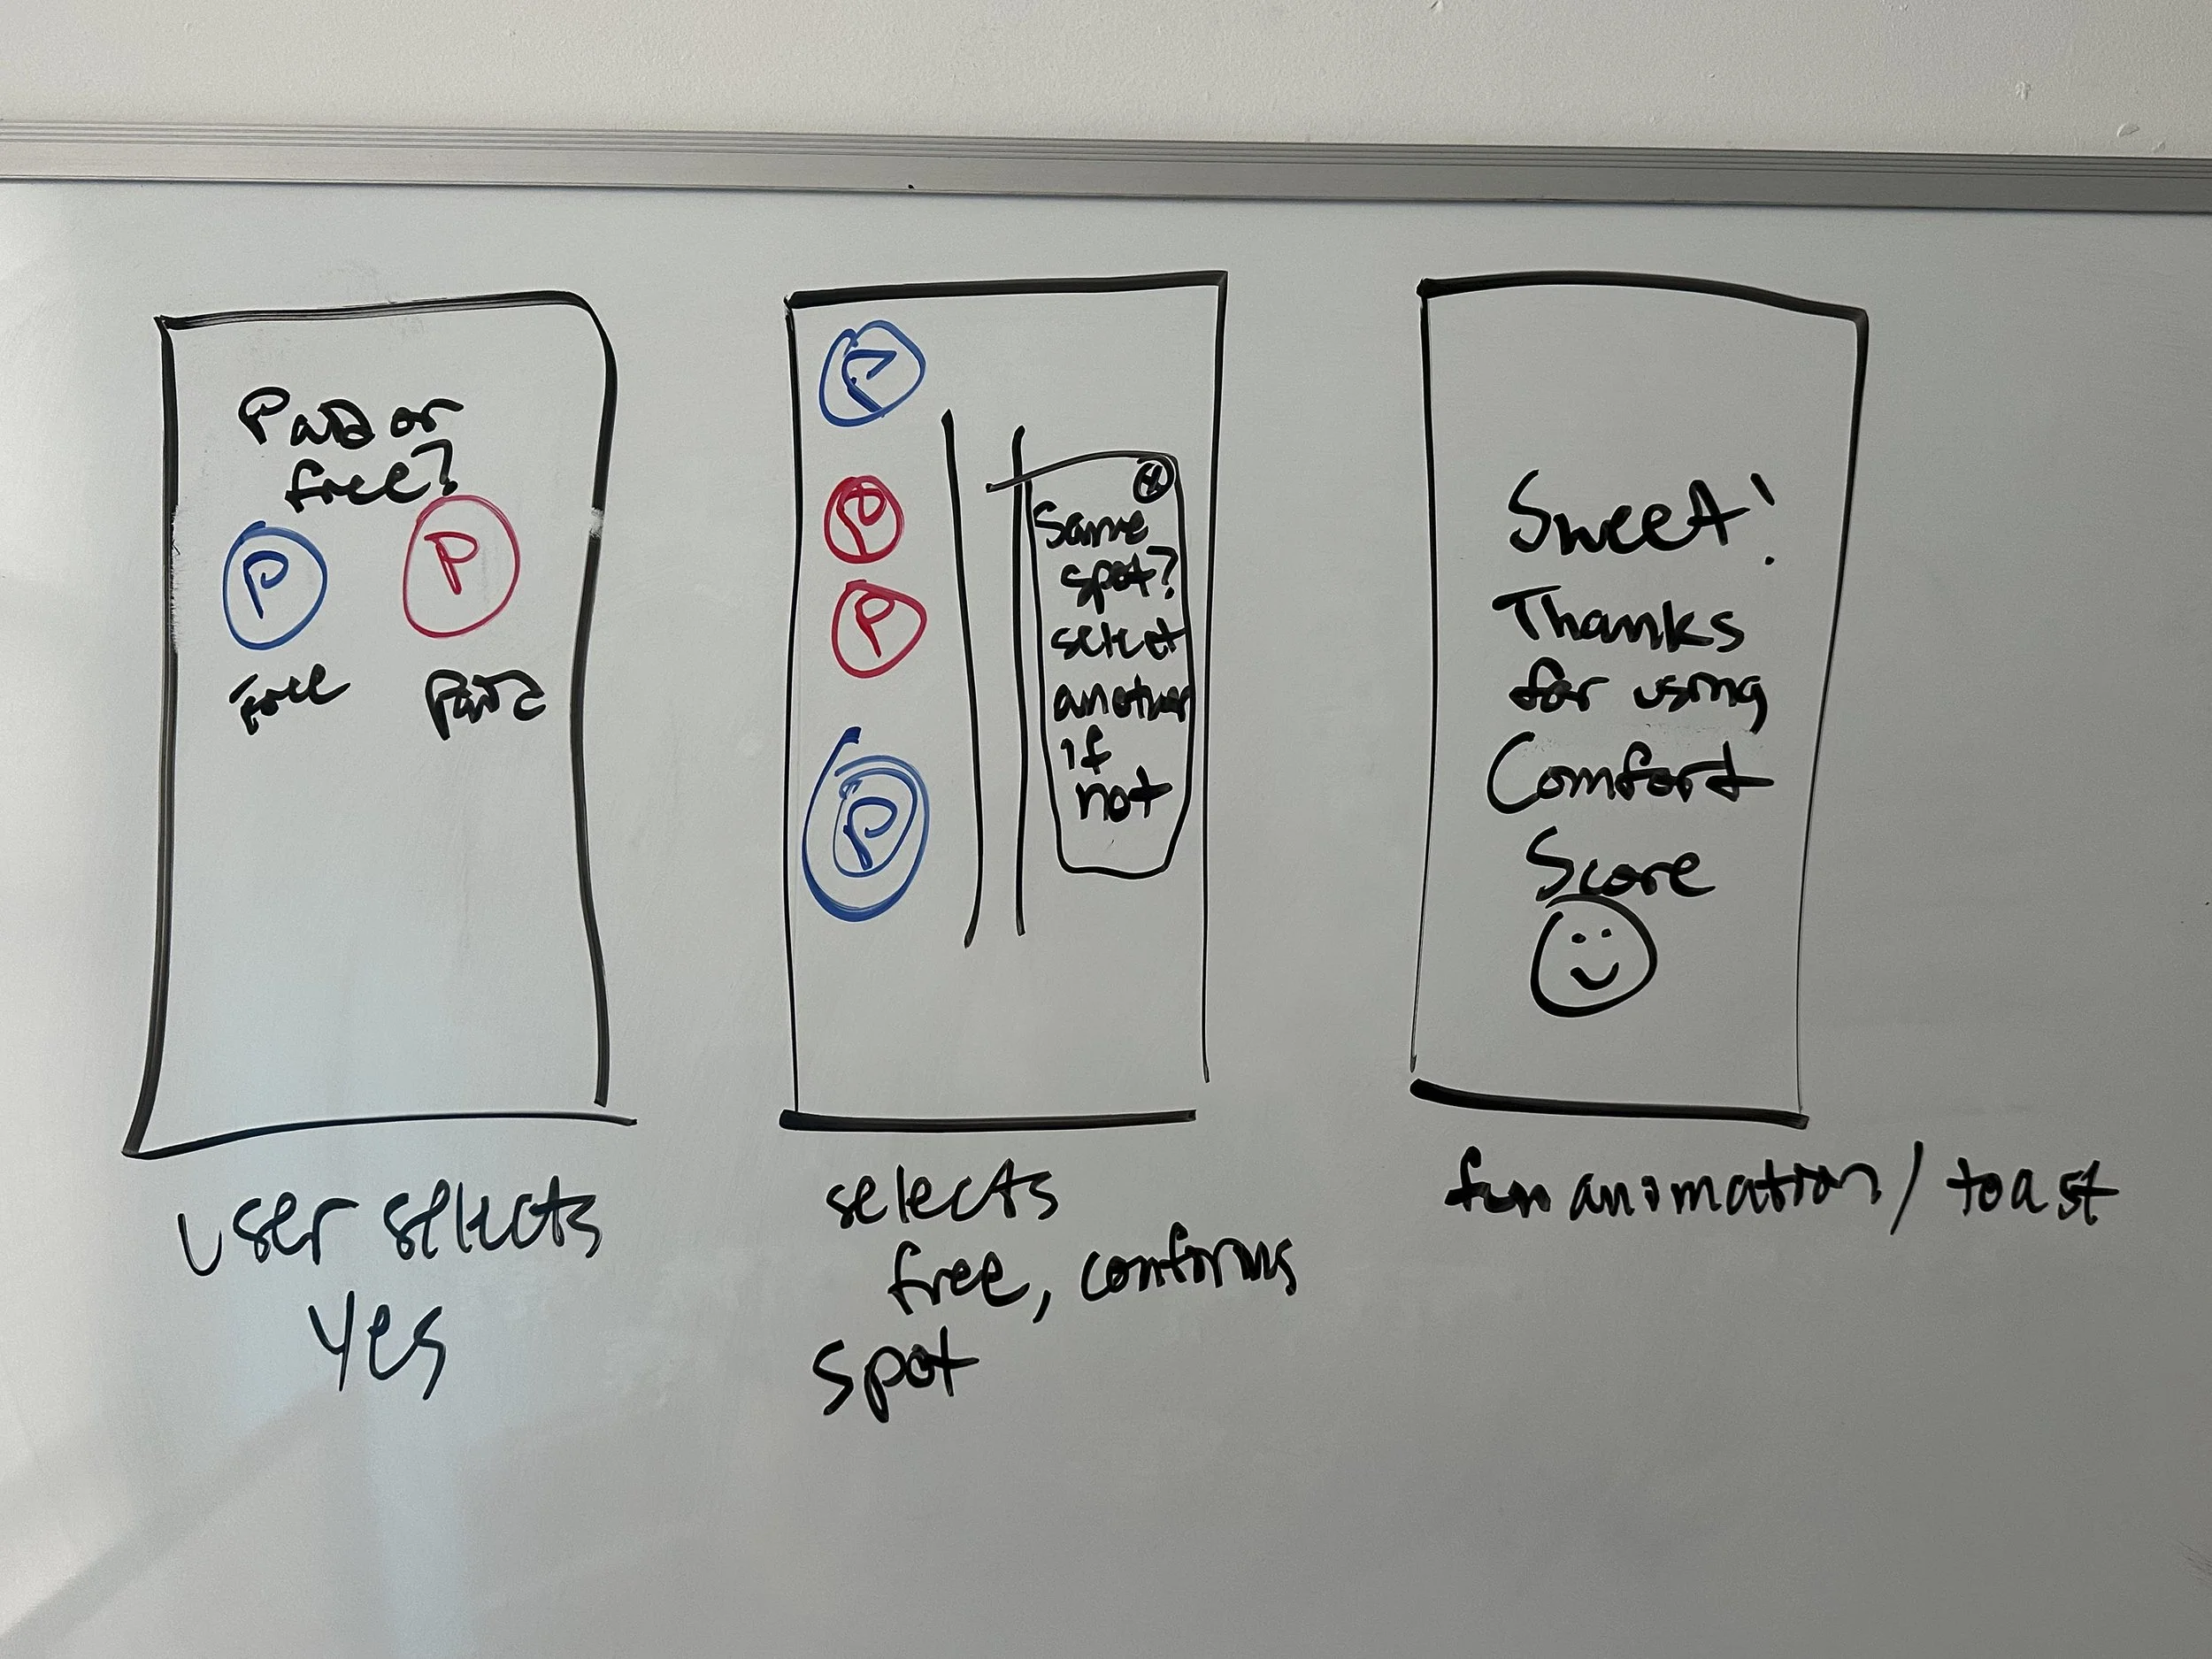 Paid or
free?
P
P
Free
Paid
user selects
yes
P
P
P
P
X
Same
spot?
select
another
if
not
selects
free, confirms
spot
Sweet!
Thanks
for using
Comfort
Score
fun animation / toast